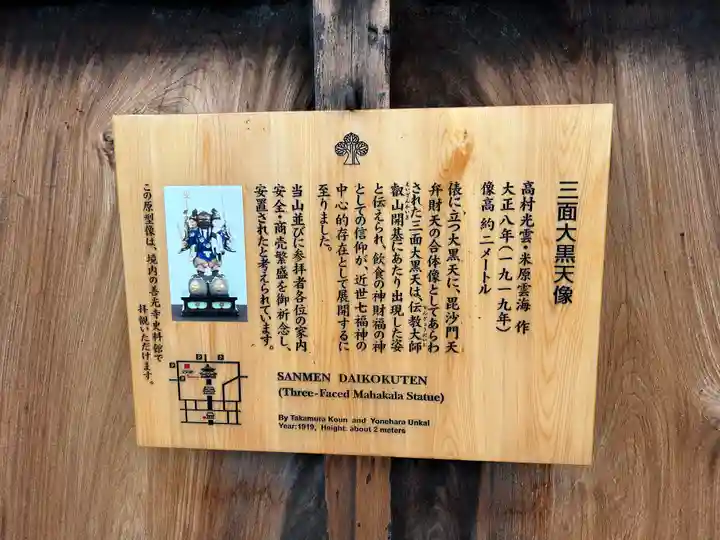 三面大黒天像
高村光雲・米原雲海 作
大正八年(一九一九年)
像高 約二メートル
俵に立つ大黒天に、毘沙門天
弁財天の合体像としてあらわ
された三面大黒天は、伝教大師
叡山開基にあたり出現した姿
と伝えられ、飲食の神財福の神
としての信仰が、近世七福神の
中心的存在として展開するに
至りました。
当山並びに参拝者各位の家内
安全・商売繁盛を御祈念し、
安置されたと考えられています。
この原型像は、境内の善光寺史料館で
拝観いただけます。
SANMEN DAIKOKUTEN
(Three-Faced Mahakala Statue)
By Takamura Koun and Yonehara Unkai
Year:1919, Height: about 2 meters